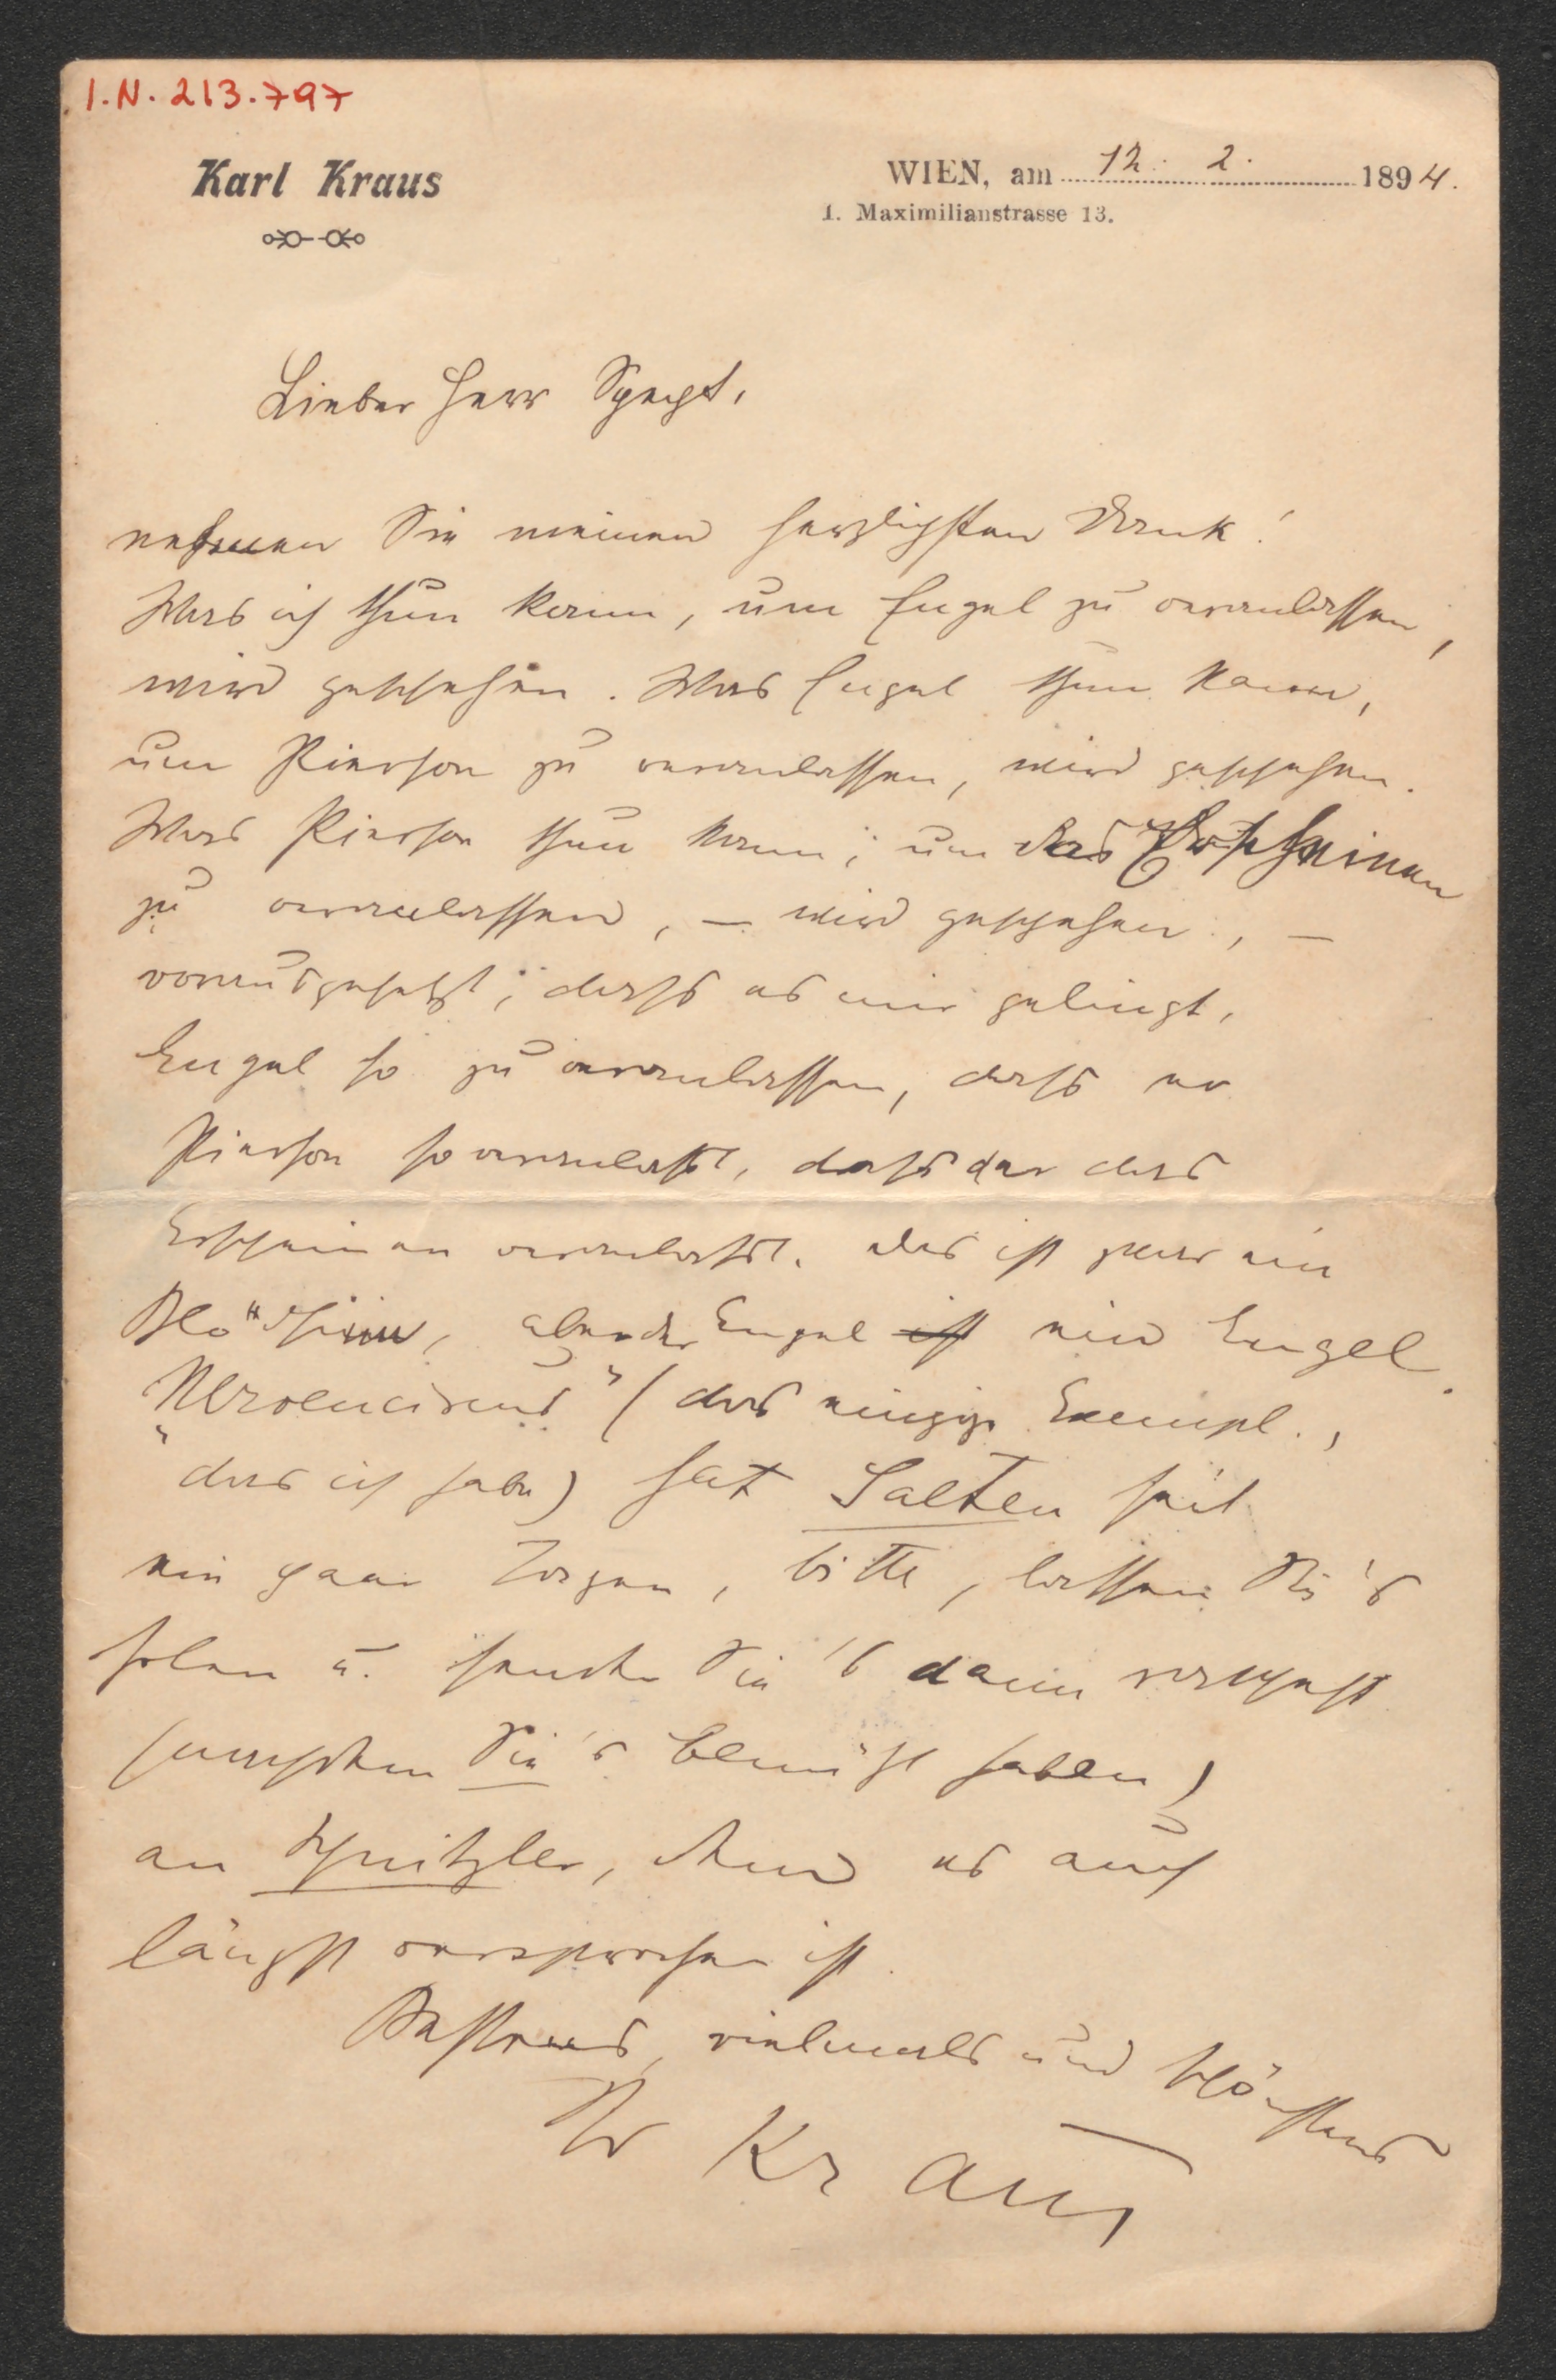 I.N. 213.797
Karl Kraus
WIEN, am 12. 2. 1894.
I. Maximilianstrasse 13.
Lieber Herr Specht,
nehmen Sie meinen herzlichsten Dank!
Was ich thun kann, um Engel zu veranlassen,
wird geschehen. Was Engel thun kann,
um Pierson zu veranlassen, wird geschehen.
Was Pierson thun kann, um das Erscheinen
zu veranlassen, – wird geschehen, –
vorausgesetzt, dass es mir gelingt,
Engel so zu veranlassen, dass er
Pierson so veranlasst, dass der das
Erscheinen veranlasst. Das ist zwar ein
Blödsinn, aber der Engel ist ein Engel.
(das einzige Exempl.,
das ich habe) hat Salten seit
ein paar Tagen, bitte, lassen Sie's
holen u. senden Sie's dann
(nachdem Sie's benützt haben)
an Schnitzler, dem es auch
längst versprochen ist.
Bestens, vielmals und höchstens
Ihr Kraus